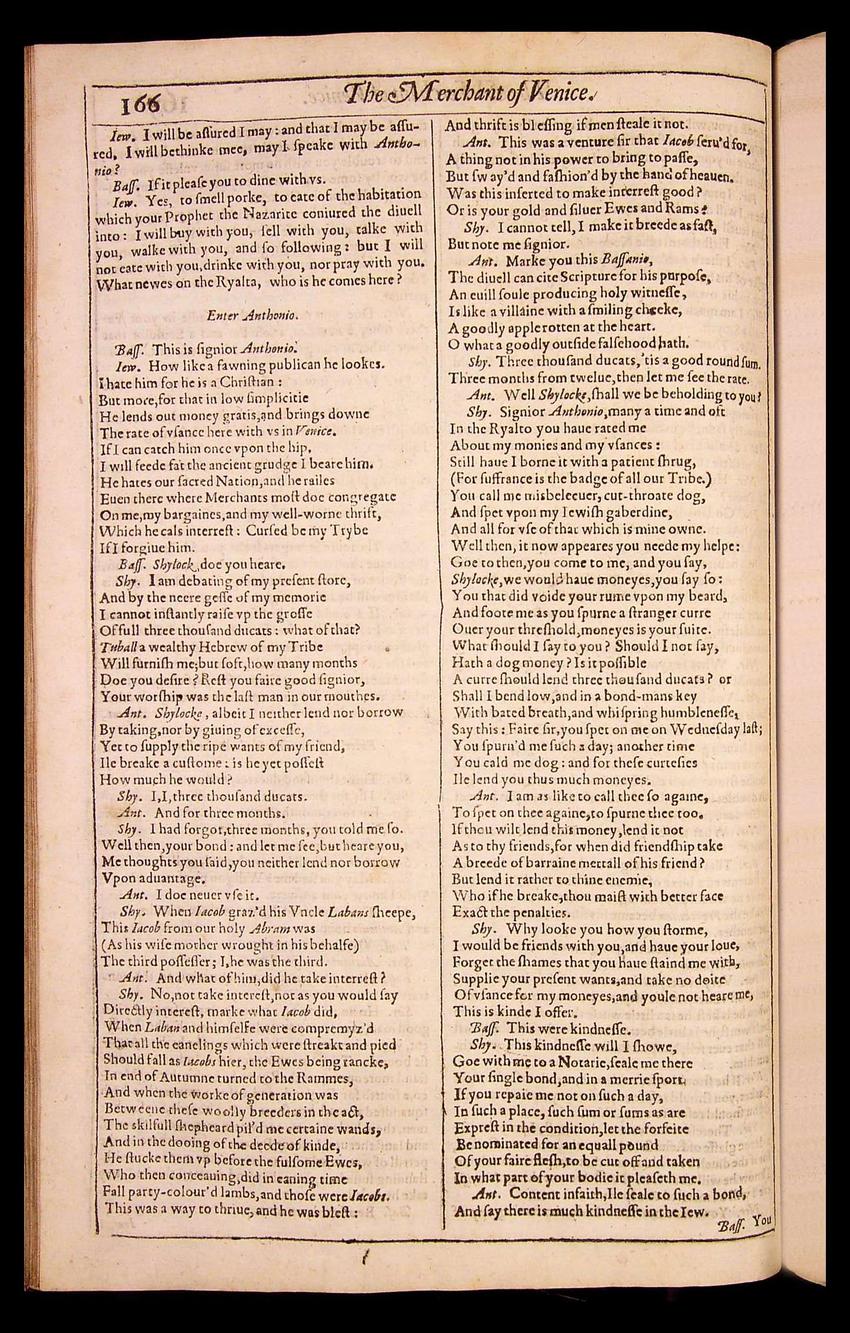 166
The Merchant of Venice.
Iew. I will be aſſured I may: and that I may be aſſu-
red, I will bethinke mee, may I ſpeake with Antho-
nio?
Baſſ. If it pleaſe you to dine with vs.
Iew. Yes, to ſmell porke, to eate of the habitation
which your Prophet the Nazarite coniured the diuell
into: I will buy with you, ſell with you, talke with
you, walke with you, and ſo following: but I will
not eate with you, drinke with you, nor pray with you.
What newes on the Ryalta, who is he comes here?
Enter Anthonio.
Baſſ. This is ſignior Anthonio.
Iew. How like a fawning publican he lookes.
I hate him for he is a Chriſtian:
But more, for that in low ſimplicitie
He lends out money gratis, and brings downe
The rate of vſance here with vs in Venice.
If I can catch him once vpon the hip,
I will feede fat the ancient grudge I beare him.
He hates our ſacred Nation, and he railes
Euen there where Merchants moſt doe congregate
On me, my bargaines, and my well-worne thrift,
Which he cals interreſt: Curſed be my Trybe
If I forgiue him.
Baſſ. Shylock, doe you heare.
Shy. I am debating of my preſent ſtore,
And by the neere geſſe of my memorie
I cannot inſtantly raiſe vp the groſſe
Of full three thouſand ducats: what of that?
Tuball a wealthy Hebrew of my Tribe
Will furniſh me; but ſoft, how many months
Doe you deſire? Reſt you faire good ſignior,
Your worſhip was the laſt man in our mouthes.
Ant. Shylocke, albeit I neither lend nor borrow
By taking, nor by giuing of exceſſe,
Yet to ſupply the ripe wants of my friend,
Ile breake a cuſtome: is he yet poſſeſt
How much he would?
Shy. I, I, three thouſand ducats.
Ant. And for three months.
Shy. I had forgot, three months, you told me ſo.
Well then, your bond: and let me ſee, but heare you,
Me thoughts you ſaid, you neither lend nor borrow
Vpon aduantage.
Ant. I doe neuer vſe it.
Shy. When Iacob graz'd his Vncle Labans ſheepe,
This Iacob from our holy Abram was
(As his wiſe mother wrought in his behalfe)
The third poſſeſſer; I, he was the third.
Ant. And what of him, did he take interreſt?
Shy. No, not take intereſt, not as you would ſay
Directly intereſt, marke what Iacob did,
When Laban and himſelfe were compremyz'd
That all the eanelings which were ſtreakt and pied
Should fall as Iacobs hier, the Ewes being rancke,
In end of Autumne turned to the Rammes,
And when the worke of generation was
Betweene theſe woolly breeders in the act,
The skilfull ſhepheard pil'd me certaine wands,
And in the dooing of the deede of kinde,
He ſtucke them vp before the fulſome Ewes,
Who then conceauing, did in eaning time
Fall party-colour'd lambs, and thoſe were Iacobs.
This was a way to thriue, and he was bleſt:
And thrift is bleſſing if men ſteale it not.
Ant. This was a venture ſir that Iacob ſeru'd for,
A thing not in his power to bring to paſſe,
But ſway'd and faſhion'd by the hand of heauen.
Was this inſerted to make interreſt good?
Or is your gold and ſiluer Ewes and Rams?
Shy. I cannot tell, I make it breede as faſt,
But note me ſignior.
Ant. Marke you this Baſſanio,
The diuell can cite Scripture for his purpoſe,
An euill ſoule producing holy witneſſe,
Is like a villaine with a ſmiling cheeke,
A goodly apple rotten at the heart.
O what a goodly outſide falſehood hath.
Shy. Three thouſand ducats, 'tis a good round ſum.
Three months from twelue, then let me ſee the rate.
Ant. Well Shylocke, ſhall we be beholding to you?
Shy. Signior Anthonio, many a time and oft
In the Ryalto you haue rated me
About my monies and my vſances:
Still haue I borne it with a patient ſhrug,
(For ſuffrance is the badge of all our Tribe.)
You call me misbeleeuer, cut-throate dog,
And ſpet vpon my Iewiſh gaberdine,
And all for vſe of that which is mine owne.
Well then, it now appeares you neede my helpe:
Goe to then, you come to me, and you ſay,
Shylocke, we would haue moneyes, you ſay ſo:
You that did voide your rume vpon my beard,
And foote me as you ſpurne a ſtranger curre
Ouer your threſhold, moneyes is your ſuite.
What ſhould I ſay to you? Should I not ſay,
Hath a dog money? Is it poſſible
A curre ſhould lend three thouſand ducats? or
Shall I bend low, and in a bond-mans key
With bated breath, and whiſpring humbleneſſe,
Say this: Faire ſir, you ſpet on me on Wedneſday laſt;
You ſpurn'd me ſuch a day; another time
You cald me dog: and for theſe curteſies
Ile lend you thus much moneyes.
Ant. I am as like to call thee ſo againe,
To ſpet on thee againe, to ſpurne thee too.
If thou wilt lend this money, lend it not
As to thy friends, for when did friendſhip take
A breede of barraine mettall of his friend?
But lend it rather to thine enemie,
Who if he breake, thou maiſt with better face
Exact the penalties.
Shy. Why looke you how you ſtorme,
I would be friends with you, and haue your loue,
Forget the ſhames that you haue ſtaind me with,
Supplie your preſent wants, and take no doite
Of vſance for my moneyes, and youle not heare me,
This is kinde I offer.
Baſſ. This were kindneſſe.
Shy. This kindneſſe will I ſhowe,
Goe with me to a Notarie, ſeale me there
Your ſingle bond, and in a merrie ſport
If you repaie me not on ſuch a day,
In ſuch a place, ſuch ſum or ſums as are
Expreſt in the condition, let the forfeite
Be nominated for an equall pound
Of your faire fleſh, to be cut off and taken
In what part of your bodie it pleaſeth me.
Ant. Content infaith, Ile ſeale to ſuch a bond,
And ſay there is much kindneſſe in the Iew.
Baſſ. You